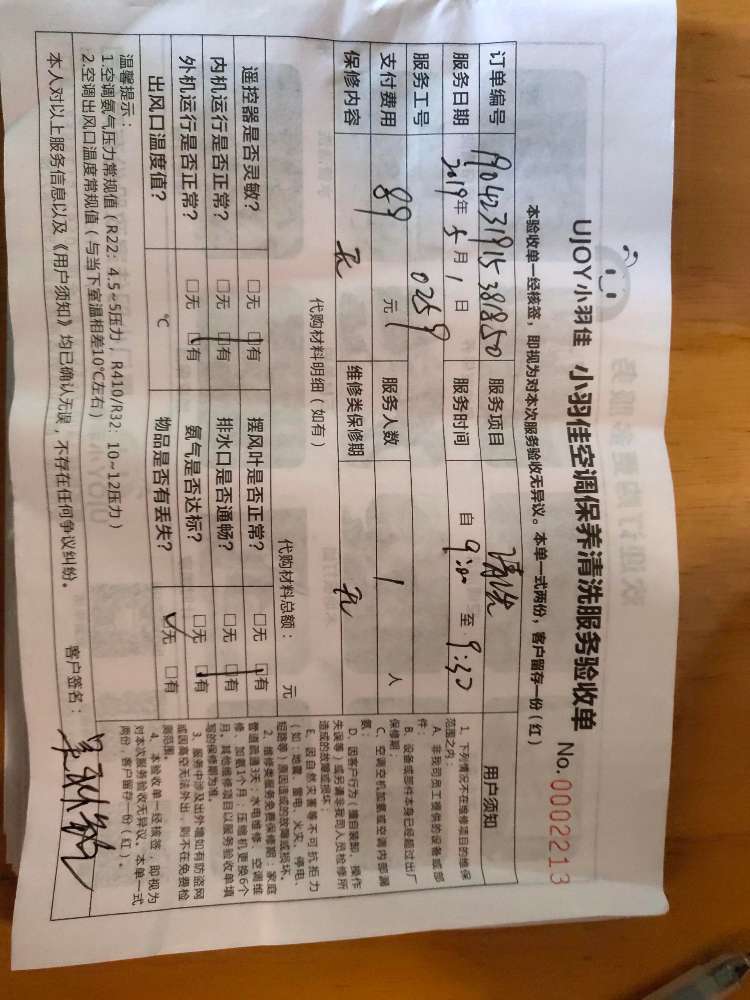 UJOY小羽佳 小羽佳空调保养清洗服务验收单 No.0002213
本验收单一经核签，即视为对本次服务验收无异议。本单一式两份，客户留存一份(红)
订单编号 190423191538850 服务项目 清洗
服务日期 2019年5月1日 服务时间 自9:00至9:30
服务工号 0259
支付费用 89元 服务人数 1人
保修内容 无 维修类保修期 无
代购材料明细(如有) 代购材料总额： 元
遥控器是否灵敏? □无 □有 摆风叶是否正常? □无 □有
内机运行是否正常? □无 □有 排水口是否通畅? □无 □有
外机运行是否正常? □无 □有 氨气是否达标? □无 □有
出风口温度值? ℃ 物品是否有丢失? □无 □有
温馨提示：
1.空调氨气压力常规值(R22: 4.5~5压力，R410/R32: 10~12压力)
2.空调出风口温度常规值(与当下室温相差10℃左右)
本人对以上服务信息以及《用户须知》均已确认无误，不存在任何争议纠纷。 客户签名：
用户须知
1、下列情况不在维修项目的维保
范围之内：
A、非我司员工提供的设备或部
件；
B、设备或部件本身已经超过出厂
保修期；
C、空调空机加氨或空调内部漏
氨；
D、因客户行为(擅自装卸、操作
失误等)或另请非我司人员检修所
造成的故障或损坏；
E、因自然灾害等不可抗拒力
(如：地震、雷电、火灾、停电、
短路等)原因造成的故障或损坏。
2、维修类服务免费保修期：家庭
管道疏通3天；水电维修、空调维
修、加氨1个月；压缩机更换6个
月；其他维修项目以服务验收单填
写的保修期为准。
3、服务中涉及出外墙如有防盗网
或因高空无法外出，则不在免费检
测范围。
4、本验收单一经核签，即视为
对本次服务验收无异议。本单一式
两份，客户留存一份(红)。